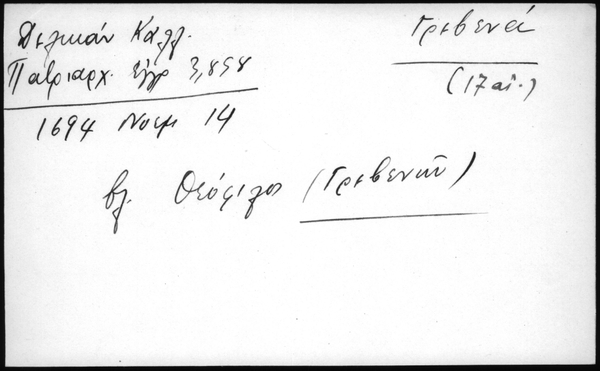 Δελικάν Καλλ.
Πατριαρχ. Εγγρ 3,898
1694 Νοεμ 14
Γρεβενά
(17 αι.)
βλ. Θεόφιλος (Γρεβενῶν)